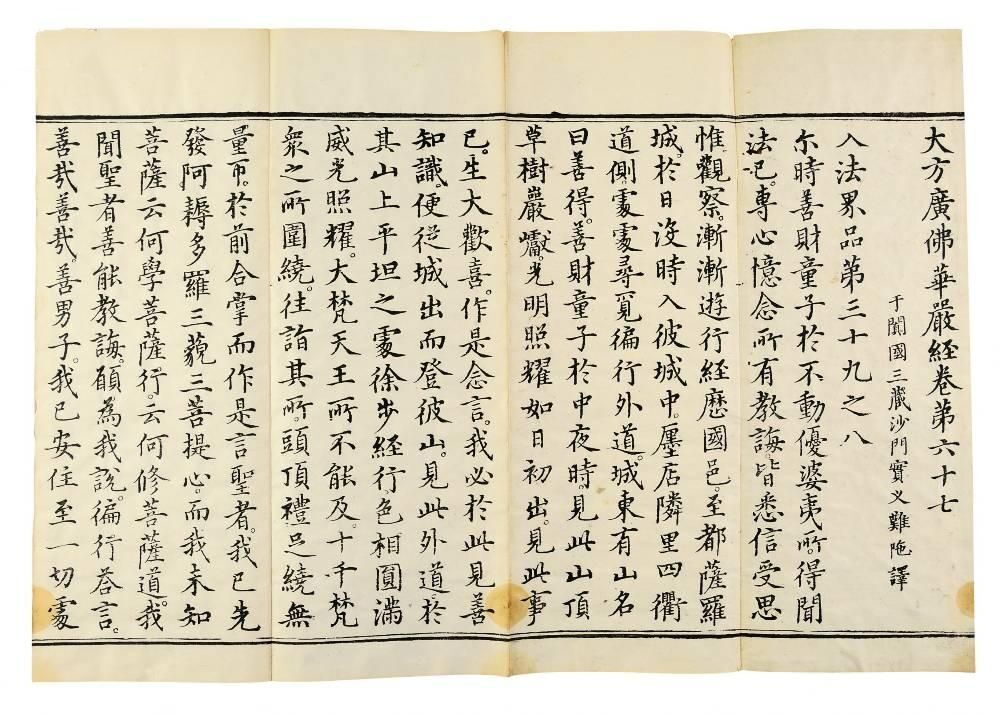 大方廣佛華嚴経卷第六十七
于闐國三藏沙門實叉難陁譯
入法界品第三十九之八
尒時善財童子於不動優婆夷所。得聞
法已。專心憶念所有教誨。皆悉信受思
惟觀察。漸漸遊行経歷國邑。至都薩羅
城。於日没時入彼城中。廛店隣里四衢
道側。處處尋覓徧行外道。城東有山名
曰善得。善財童子於中夜時。見此山頂
草樹巖巘。光明照耀如日初出。見此事
已。生大歡喜。作是念言。我必於此見善
知識。便從城出而登彼山。見此外道。於
其山上平坦之處徐步経行。色相圓滿
威光照耀。大梵天王所不能及。十千梵
衆之所圍繞。往詣其所。頭頂禮足繞無
量帀。於前合掌而作是言。聖者。我已先
發阿耨多羅三藐三菩提心。而我未知
菩薩云何學菩薩行。云何修菩薩道。我
聞聖者善能教誨。願為我說。徧行荅言。
善哉善哉。善男子。我已安住至一切處